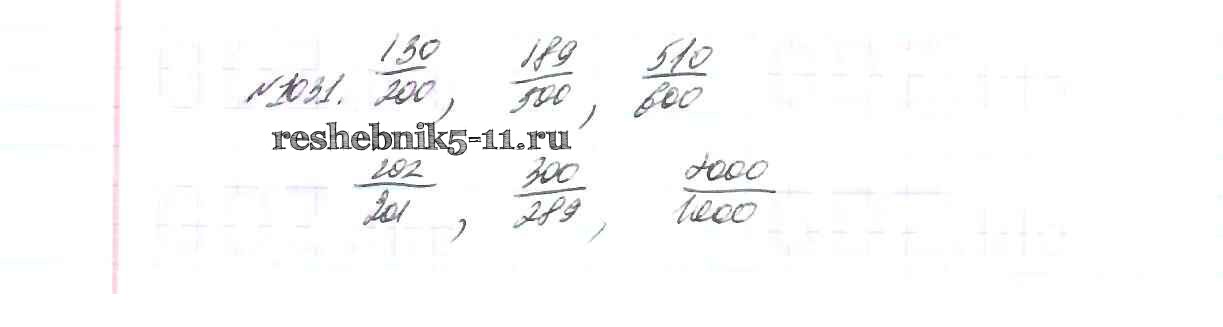 №1031. 130/200, 189/500, 510/600
reshebnik5-11.ru
202/201, 300/289, 2000/1000